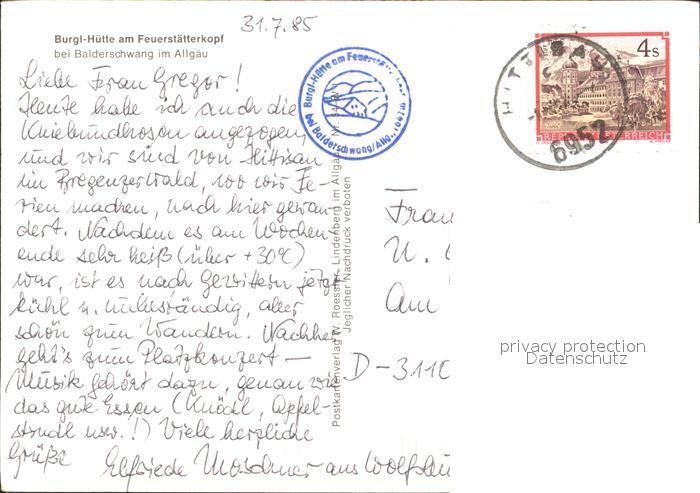 31.7.85
Burgl-Hütte am Feuerstätterkopf
bei Balderschwang im Allgäu
Liebe Frau Gregor!
Heute habe ich auch die
Kniebundhosen angezogen,
und wir sind von Hittisau
im Bregenzerwald, wo wir Fe-
rien machen, nach hier gewan-
dert. Nachdem es am Wochen-
ende sehr heiß (über +30°C)
war, ist es nach Gewittern jetzt
kühl u. unbeständig, aber
schön zum Wandern. Nachher
geht's zum Platzkonzert –
Musik gehört dazu, genau wie
das gute Essen (Knödl, Apfel-
strudl usw.!) Viele herzliche
Grüße
Elfriede Moschner aus Wolfsbu
Burgl-Hütte am Feuerstätterkopf
bei Balderschwang/Allg.
Postkartenverlag W. Roessler, Lindenberg im Allgäu
Jeglicher Nachdruck verboten
4 S
REPUBLIK ÖSTERREICH
HITTISAU
6952
Frau
U.
Am
D-3110
privacy protection
Datenschutz